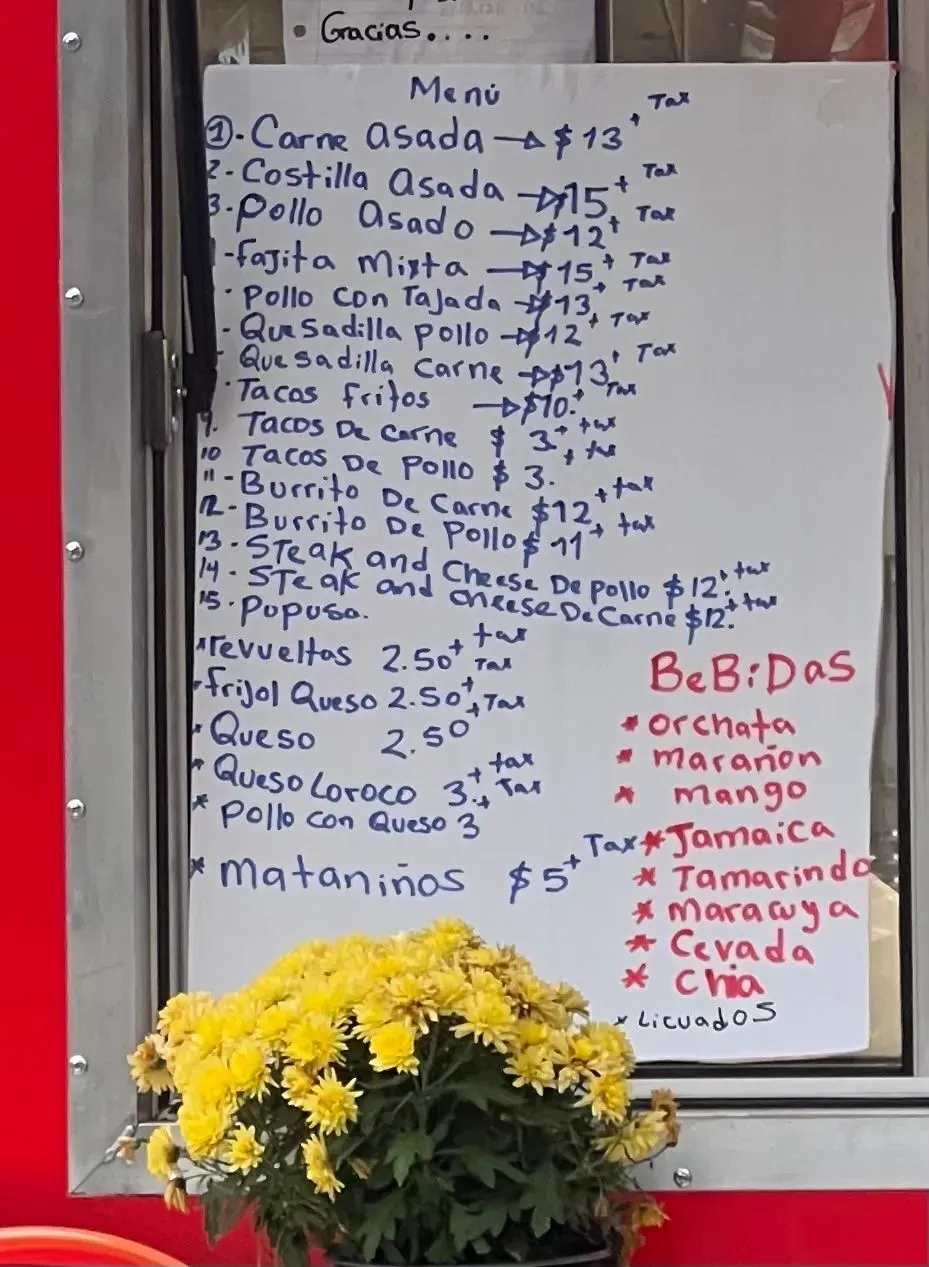 • Gracias....
Menú
①- Carne asada → $13 + Tax
2- Costilla asada → $15 + Tax
3. Pollo asado → $12 + Tax
-fajita mixta → $15 + Tax
· Pollo con Tajada → $13 + Tax
- Quesadilla pollo → $12 + Tax
Quesadilla carne → $13 + Tax
· Tacos fritos → $10. + Tax
9. Tacos De carne $ 3. + tax
10 Tacos De Pollo $ 3. + tax
11- Burrito De Carne $12 + tax
12- Burrito De Pollo $ 11 + tax
13. STeak and Cheese De pollo $12. + tax
14. STeak and cheese De Carne $12. + tax
15. Popusa.
*revueltas 2.50 + tax
-frijol Queso 2.50 + Tax
* Queso 2.50 + Tax
* Queso Loroco 3. + tax
* Pollo con Queso 3 + Tax
* mataniños $5 + Tax
BeBiDaS
* orchata
* marañon
* mango
* Jamaica
* Tamarindo
* maracuya
* Cevada
* Chia
* LicuadoS